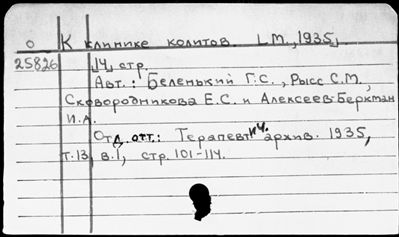 о К клинике колитов. L.М., 1935,
25826 14, стр.
Авт.: Беленький Г.С., Рысс С.М.,
Сковородникова Е.С. и Алексеев-Беркман
И.А.
Отд. отт.: Терапевтич. архив. 1935,
т.13, в.1, стр. 101-114.